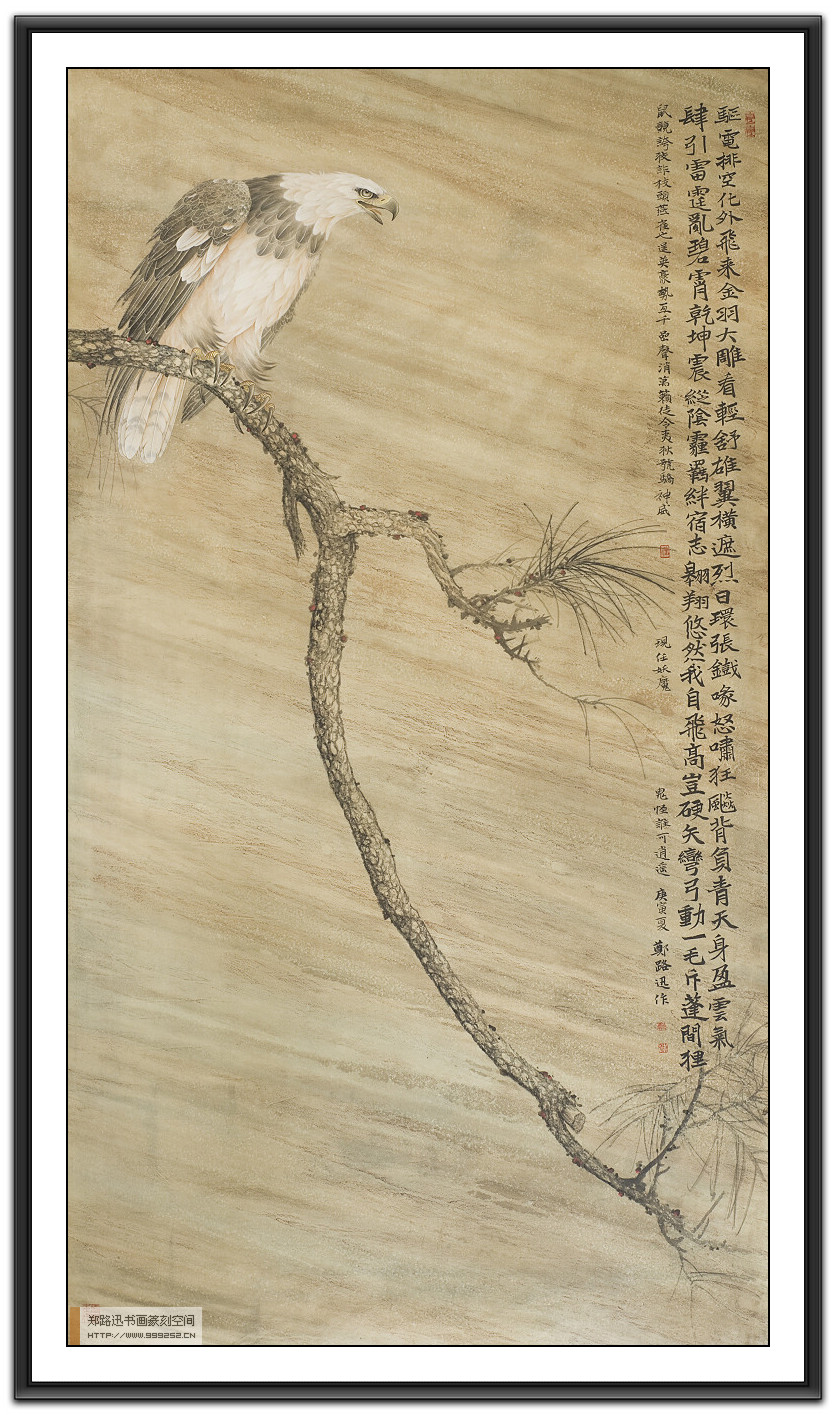 驅電排空化外飛来金羽大雕看輕舒雄翼橫遮烈日環張鐵喙怒嘯狂飈背負青天身盈雲氣
肆引雷霆亂碧霄乾坤震縱陰霾羈絆宿志翱翔悠然我自飛高豈硬矢彎弓動一毛斥蓬間狸
鼠競誇狡詐枝頭燕雀逞英豪勢互千聲消萬籟使今夷狄號驕神威
現任妖魔
鬼怪誰可逍遥 庚寅夏 鄭路迅作
郑路迅书画篆刻空间
HTTP://WWW.999252.CN